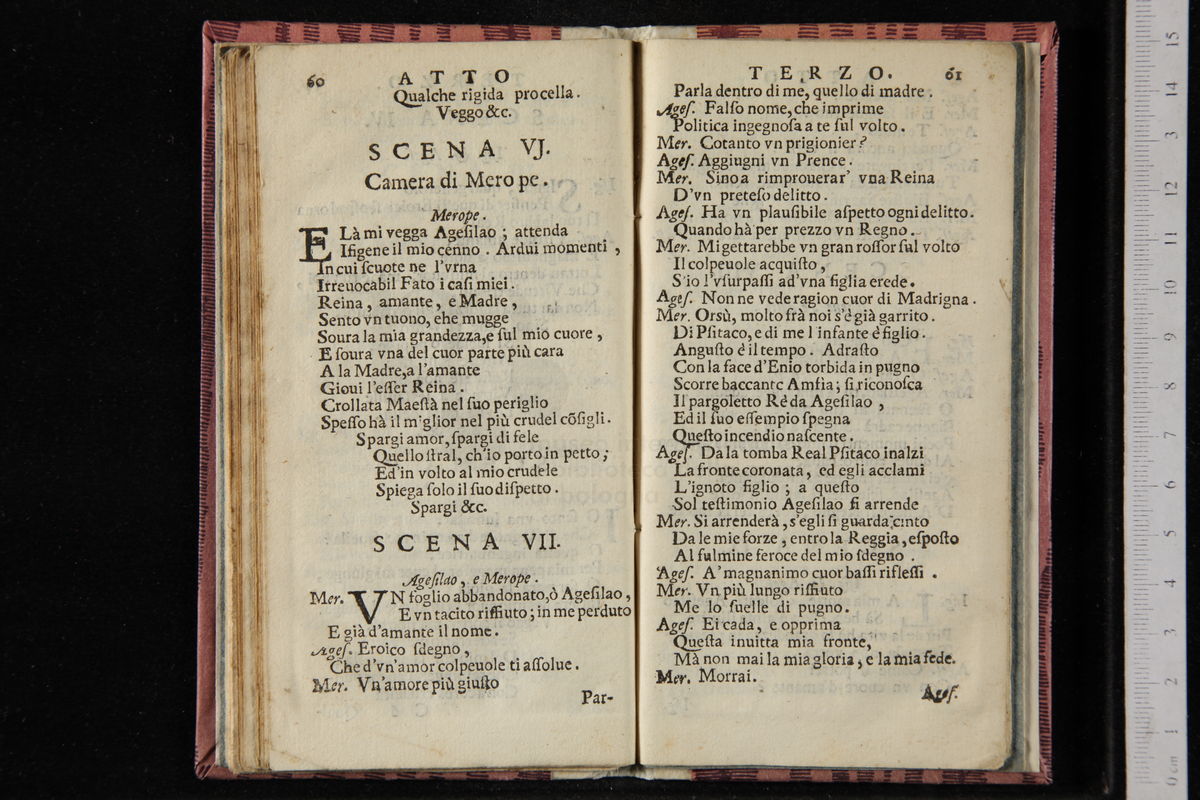 60 ATTO
Qualche rigida procella.
Veggo &c.
SCENA VJ.
Camera di Merope.
Merope.
ELà mi vegga Ageſilao ; attenda
Iſigene il mio cenno . Ardui momenti ,
In cui ſcuote ne l'vrna
Irreuocabil Fato i caſi miei .
Reina , amante , e Madre ,
Sento vn tuono, ehe mugge
Soura la mia grandezza,e ſul mio cuore ,
E ſoura vna del cuor parte più cara
A la Madre,a l'amante
Gioui l'eſſer Reina .
Crollata Maeſtà nel ſuo periglio
Speſſo hà il m'glior nel più crudel cõſigli .
Spargi amor, ſpargi di fele
Quello ſtral, ch'io porto in petto ;
Ed'in volto al mio crudele
Spiega ſolo il ſuo diſpetto .
Spargi &c.
SCENA VII.
Ageſilao , e Merope .
Mer. VN foglio abbandonato,ò Ageſilao ,
E vn tacito riffiuto ; in me perduto
E già d'amante il nome .
Ageſ. Eroico ſdegno ,
Che d'vn'amor colpeuole ti aſſolue .
Mer. Vn'amore più giuſto
Par-
TERZO. 61
Parla dentro di me, quello di madre .
Ageſ. Falſo nome, che imprime
Politica ingegnoſa a te ſul volto .
Mer. Cotanto vn prigionier ?
Ageſ. Aggiugni vn Prence .
Mer. Sino a rimprouerar' vna Reina
D'vn preteſo delitto .
Ageſ. Ha vn plauſibile aſpetto ogni delitto .
Quando hà per prezzo vn Regno .
Mer. Mi gettarebbe vn gran roſſor ſul volto
Il colpeuole acquiſto ,
S'io l'vſurpaſſi ad'vna figlia erede .
Ageſ. Non ne vede ragion cuor di Madrigna .
Mer. Orsù, molto frà noi s'è già garrito .
Di Pſitaco, e di me l infante è figlio .
Anguſto è il tempo . Adraſto
Con la face d'Enio torbida in pugno
Scorre baccante Amfia ; ſi riconoſca
Il pargoletto Rè da Ageſilao ,
Ed il ſuo eſſempio ſpegna
Queſto incendio naſcente .
Ageſ. Da la tomba Real Pſitaco inalzi
La fronte coronata , ed egli acclami
L'ignoto figlio ; a queſto
Sol teſtimonio Ageſilao ſi arrende
Mer. Si arrenderà , s'egli ſi guarda cinto
Da le mie forze , entro la Reggia , eſpoſto
Al fulmine feroce del mio ſdegno .
Ageſ. A' magnanimo cuor baſſi rifleſſi .
Mer. Vn più lungo riffiuto
Me lo ſuelle di pugno .
Ageſ. Ei cada , e opprima
Queſta inuitta mia fronte,
Mà non mai la mia gloria , e la mia fede.
Mer. Morrai .
Ageſ.
15
14
13
12
11
10
9
8
7
6
5
4
3
2
1
0 cm